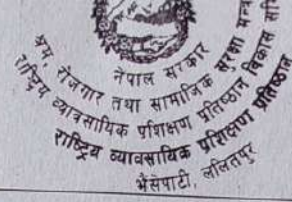 नेपाल सरकार
श्रम, रोजगार तथा सामाजिक सुरक्षा मन्त्
राष्ट्रिय व्यावसायिक प्रशिक्षण प्रतिष्ठान विकास समि
राष्ट्रिय व्यावसायिक प्रशिक्षण प्रतिष्ठान
भैंसेपाटी, ललितपुर